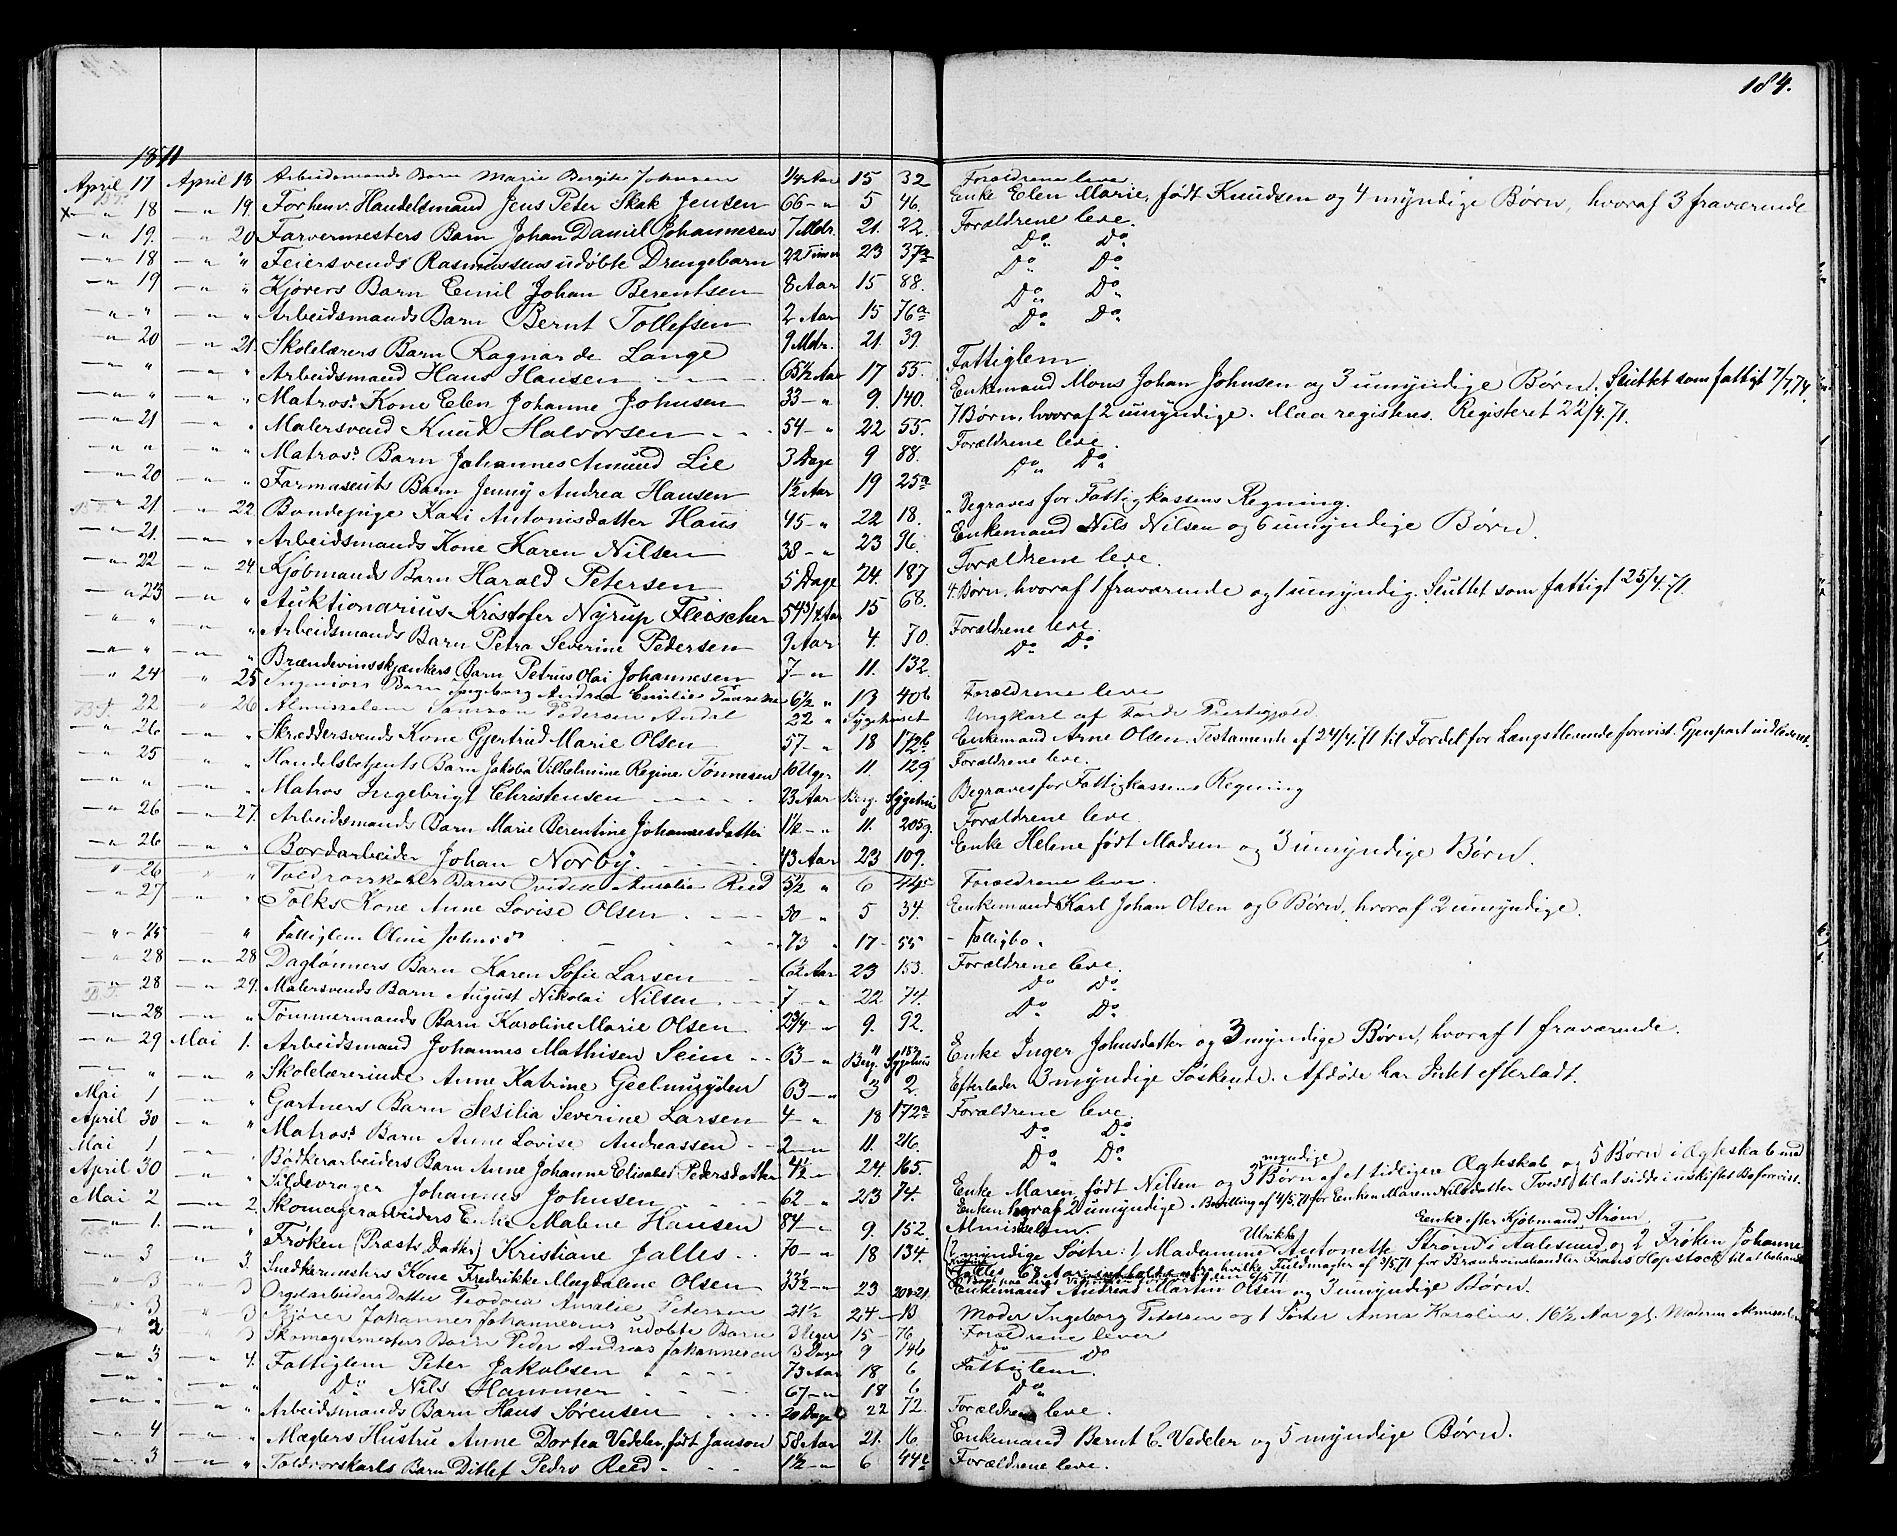 184.
1871
April 17 April 18 Arbeidsmands Barn Marie Bergitte Johnsen 1/4 Aar 15 32 Forældrene leve.
x — " 18 — " 19. Forhenv. Handelsmand Jens Peter Skak Jensen 66 — " 5 46. Enke Elen Marie, født Knudsen og 4 myndige Børn, hvoraf 3 fraværende
— " 19. " 20 Farvermesters Barn Johan Daniel Johannesen 7 Mdr. 21. 22. Forældrene leve.
— " 18 — " " Feiersvends Rasmussens udøbte Drengebarn 22 Timer 23 37a Do Do
— " 19 — " " Kjørers Barn Emil Johan Berentsen 8 Aar 15 88. Do Do
— " " — " " Arbeidsmands Barn Bernt Tollefsen 2 Aar 15 76a Do Do
— " 20 — " 21. Skolelærers Barn Ragnar de Lange 9 Mdr. 21. 39. Do Do
— " " — " " Arbeidsmand Hans Hansen 65 1/2 Aar 17 55. Fattiglem
— " " — " " Matros's Kone Elen Johanne Johnsen 33 — " 9. 140. Enkemand Mons Johan Johnsen og 3 umyndige Børn. Sluttet som fattigt 7/7.74.
— " 21 — " " Malersvend Knud Halvorsen 54 — " 22 55. 7 Børn, hvoraf 2 umyndige. Maa registres. Registeret 22/4.71.
— " " — " " Matros's Barn Johannes Amund Lie 3 Dage 9 88. Forældrene leve.
— " 20 — " " Farmaseuts Barn Jenny Andrea Hansen 1 1/2 Aar 19 25a Do Do
— " 21 — " 22. Bondepige Kari Antonisdatter Haus 45 — " 22 18. Begraves for Fattigkassens Regning.
— " 21. — " " Arbeidsmands Kone Karen Nilsen 38 — " 23 96. Enkemand Nils Nilsen og 6 umyndige Børn.
— " 22 — " 24. Kjøbmands Barn Harald Petersen 5 Dage 24. 187 Forældrene leve.
— " 23 — " " Auktionarius Kristofer Nyrup Fleischer 54 3/4 Aar 15 68. 4 Børn, hvoraf 1 fraværende og 1 umyndig. Sluttet som fattigt 25/4.71.
— " " — " " Arbeidsmands Barn Petra Severine Pedersen 9 Aar 4. 70. Forældrene leve.
— " " — " " Brændevinsskjænkers Barn Petrus Olai Johannesen 7 — " 11. 132. Do Do
" 24 " 25 Ingeniørs Barn Ingeborg Andrea Emilie 6 1/2 " 13 40b Forældrene leve
" 22 " 26 Almisselem Samson Pedersen Andal 22 " Sygehuset Ungkarl af Førde Præstegjeld
— " 26 — " " Skræddersvends Kone Gjertrud Marie Olsen 57 — " 18 172b Enkemand Arne Olsen. Testamente af 24/4.71 til Fordel for Længstlevende forevist. Gjenpart indleveret.
— " 25 — " " Handelsbetjents Barn Jakoba Vilhelmine Regine Tønnesen 10 Uger 11. 129. Forældrene leve.
— " " — " " Matros Ingebrigt Christensen 23 Aar Berg. Sygehus Begraves for Fattigkassens Regning
— " 26 — " 27. Arbeidsmands Barn Marie Berentine Johannesdatter 1 1/2 — " 11. 205g. Forældrene leve.
— " 26 — " " Bordarbeider Johan Norby 43 Aar 23 109. Enke Helene født Madsen og 3 umyndige Børn.
" 26 " " Toldrorskarls Barn Amalie Reed 5 1/2 " 6 44c Forældrene leve.
— " 27 — " " Tolks Kone Anne Lovise Olsen 50 " 5 34. Enkemand Karl Johan Olsen og 6 Børn, hvoraf 2 umyndige.
— " 25 — " Fattiglem Oline Johnsd. 73 " 17 55 — Fattigbo.
— " 28 — " 28. Dagløners Barn Karen Sofie Larsen 6 1/2 Aar 23 153. Forældrene leve.
— " 28 — " 29. Malersvends Barn August Nikolai Nilsen 7 — " 22 74. Do Do
— " 28 — " " Tømmermands Barn Karoline Marie Olsen 2 3/4 — " 9. 92. Do Do
— " 29 Mai 1. Arbeidsmand Johannes Mathisen Seim 63 — " Berg. Sygehus Enke Inger Johnsdatter og 3 myndige Børn, hvoraf 1 fraværende.
— " " — " " Skolelærerinde Anne Katrine Geelmuyden 63 — " 3 2. Efterlader 3 myndige Søskende. Afdøde har Intet efterladt.
Mai 1 — " " Gartners Barn Sesilia Severine Larsen 4 — " 18 172a Forældrene leve.
April 30 — " " Matros's Barn Anne Lovise Andreassen 2 — " 11. 216. Do Do
Mai 1 — " " Bødkerarbeiders Barn Anne Johanne Elisabet Pedersdatter 4 1/2 — " 24. 165. Do Do
April 30 " " Sildevrager Johannes Johnsen 62 — " 23 74. Enke Maren født Nilsen og 3 myndige Børn af et tidligere Ægteskab og 5 Børn i Ægteskab med
Enken hvoraf 2 umyndige. Bevilling af 4/5.71 for Enken Maren Nilsdatter Tvedt til at sidde i uskiftet Bo forevist.
Mai 2 — " 2. Skomagerarbeiders Enke Malene Hansen 84 — " 9. 152. Almisselem
— " 1. — " " Frøken (Præsts Datter) Kristiane Jalles 70 — " 18 134. 2 myndige Søstre: 1 Madamme Ulrikke Antonette Strøm i Aalesund, Enke efter Kjøbmand Strøm og 2 Frøken Johanne
Jalles 68 Aar hvilke Fuldmagter af 3/5.71 for Brændevinshandler Frans Hopstock til at behandle
— " 3 — " 3. Snedkermesters Kone Fredrikke Magdalene Olsen 33 1/2 — " 23 208-21. Enkemand Andreas Martin Olsen og 3 umyndige Børn.
" 3 " 3 Orgelarbeiders Datter Teodora Amalie Petersen 21 1/2 24 — 13 Moder Ingeborg Petersen og 1 Søster Anna Karoline, 16 1/2 Aar gl. Moderen Almisselem
" 3 " 3 Kjører Johannes Johannesens udøbte Barn 3 Uger 15 — 76 Forældrene lever
" 2 " 3 Skomagermesters Barn Peder Andreas Johannesen 3 Dage 9 146 Do Do
— " 3 — " 4. Fattiglem Peter Jakobsen 73 Aar 18 6 Fattiglem.
— " " — " " Do Nils Hammer 67 — " 18 6 Do
— " " — " " Arbeidsmands Barn Hans Sørensen 20 Dage 22 72. Forældrene leve.
— " 4 — " " Mæglers Hustru Anne Dortea Vedeler, født Janson 58 Aar 21. 16 Enkemand Bernt C. Vedeler og 5 myndige Børn.
— " 3 — " " Toldrorskarls Barn Ditlef Pedro Reed 1 1/2 — " 6 44c Forældrene leve.